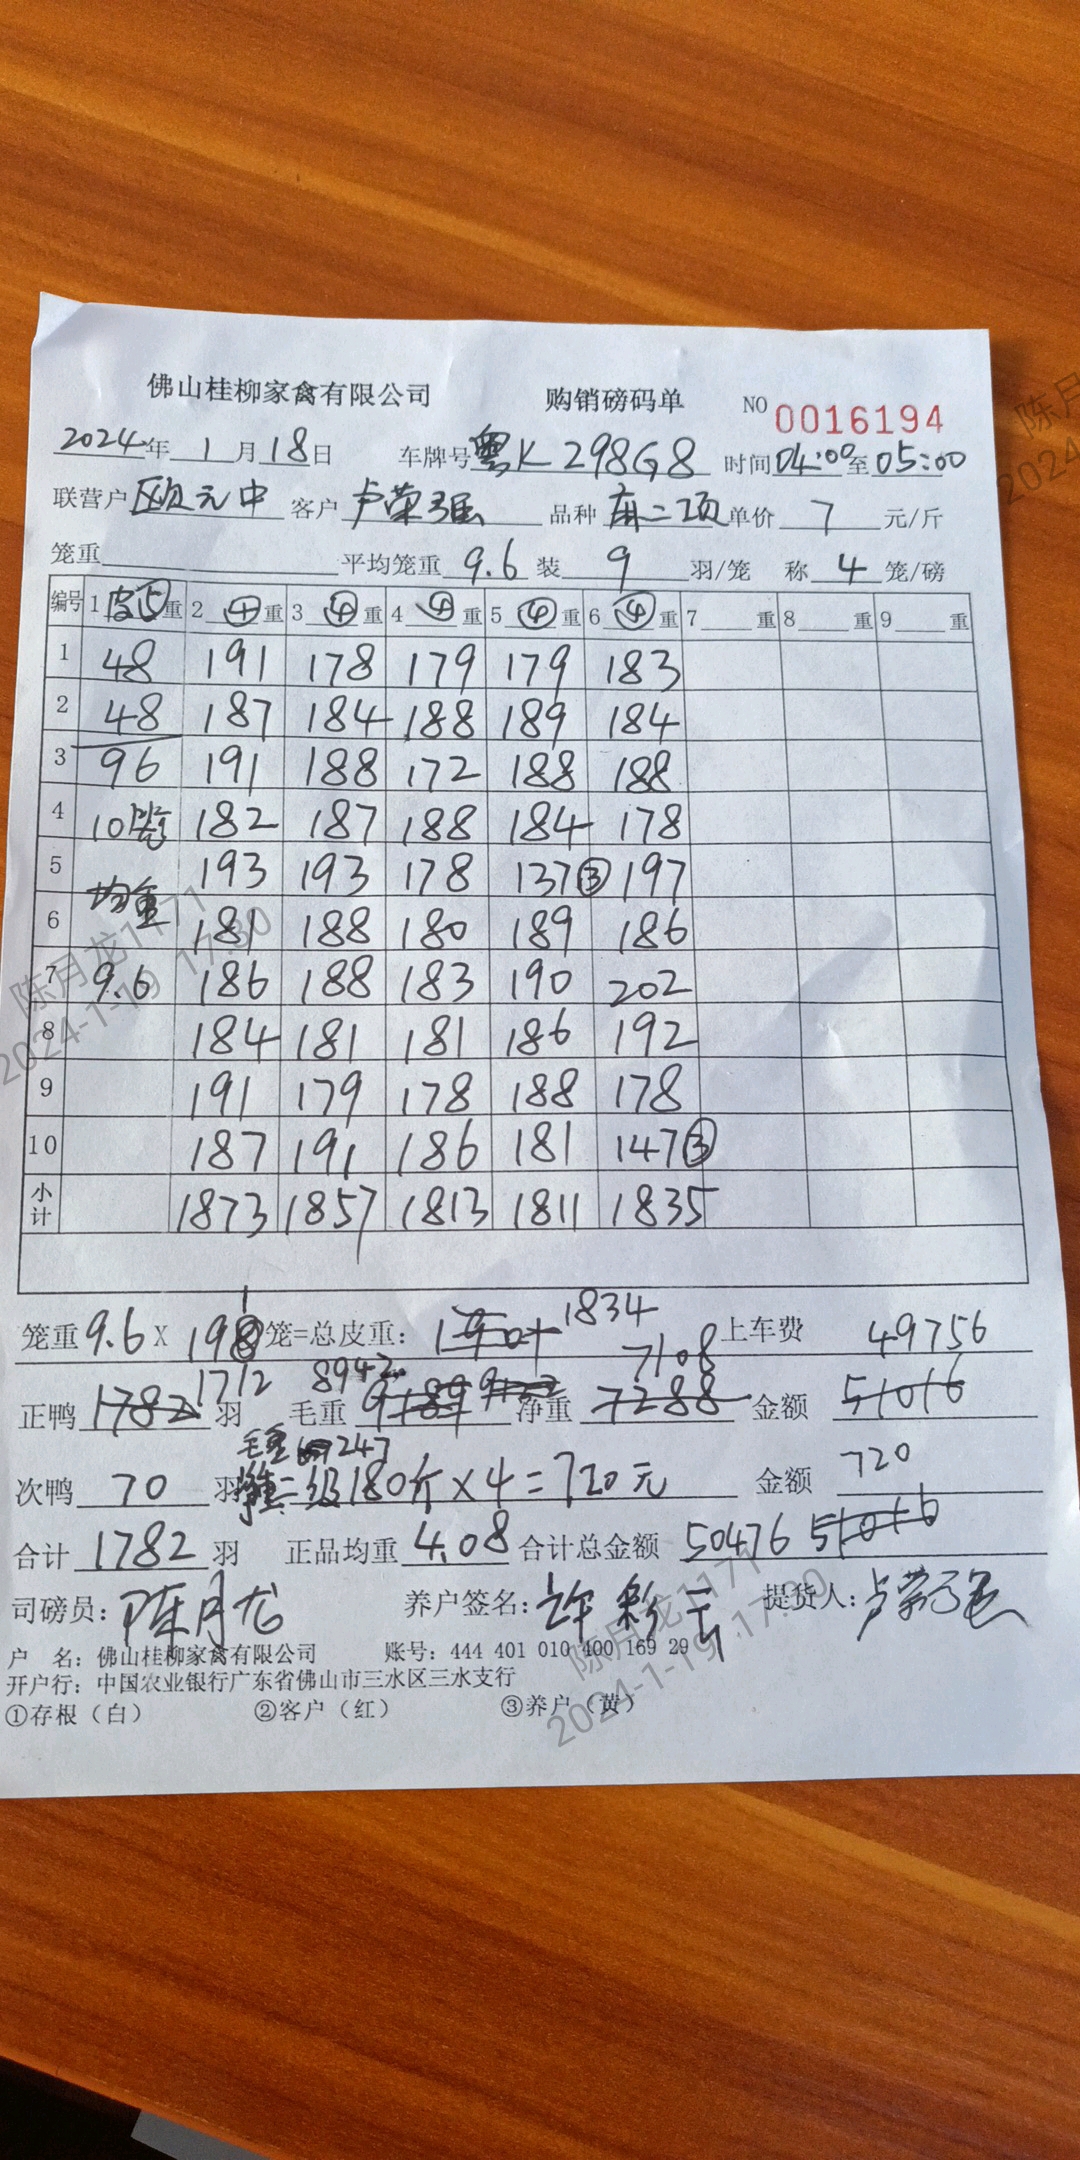 佛山桂柳家禽有限公司 购销磅码单 NO 0016194
2024年 1月18日 车牌号 粤K298G8 时间 04:00至05:00
联营户 欧元中 客户 卢荣强 品种 二项 单价 7 元/斤
笼重 平均笼重 9.6 装 9 羽/笼 称 4 笼/磅
编号 1 皮⑤重 2 ④重 3 ④重 4 ④重 5 ④重 6 ④重 7 重 8 重 9 重
1 48 191 178 179 179 183
2 48 187 184 188 189 184
3 96 191 188 172 188 188
4 10笼 182 187 188 184 178
5 均重 193 193 178 137③ 197
6 181 188 180 189 186
7 9.6 186 188 183 190 202
8 184 181 181 186 192
9 191 179 178 188 178
10 187 191 186 181 147③
小计 1873 1857 1813 1811 1835
笼重 9.6 X 198 笼=总皮重: 1901 1834 上车费 49756
正鸭 1782 1712 羽 毛重 9189 8942 净重 7288 7108 金额 51016
毛重 247
次鸭 70 羽 二级180斤×4=720元 金额 720
合计 1782 羽 正品均重 4.08 合计总金额 50476 51016
司磅员: 陈月龙 养户签名: 许彩云 提货人: 卢荣强
户 名: 佛山桂柳家禽有限公司 账号: 444 401 010 400 169 29
开户行: 中国农业银行广东省佛山市三水区三水支行
①存根（白） ②客户（红） ③养户（黄）
陈月龙1171
2024-1-19 17:30
陈月龙1171
2024-1-19 17:30
陈月
2024